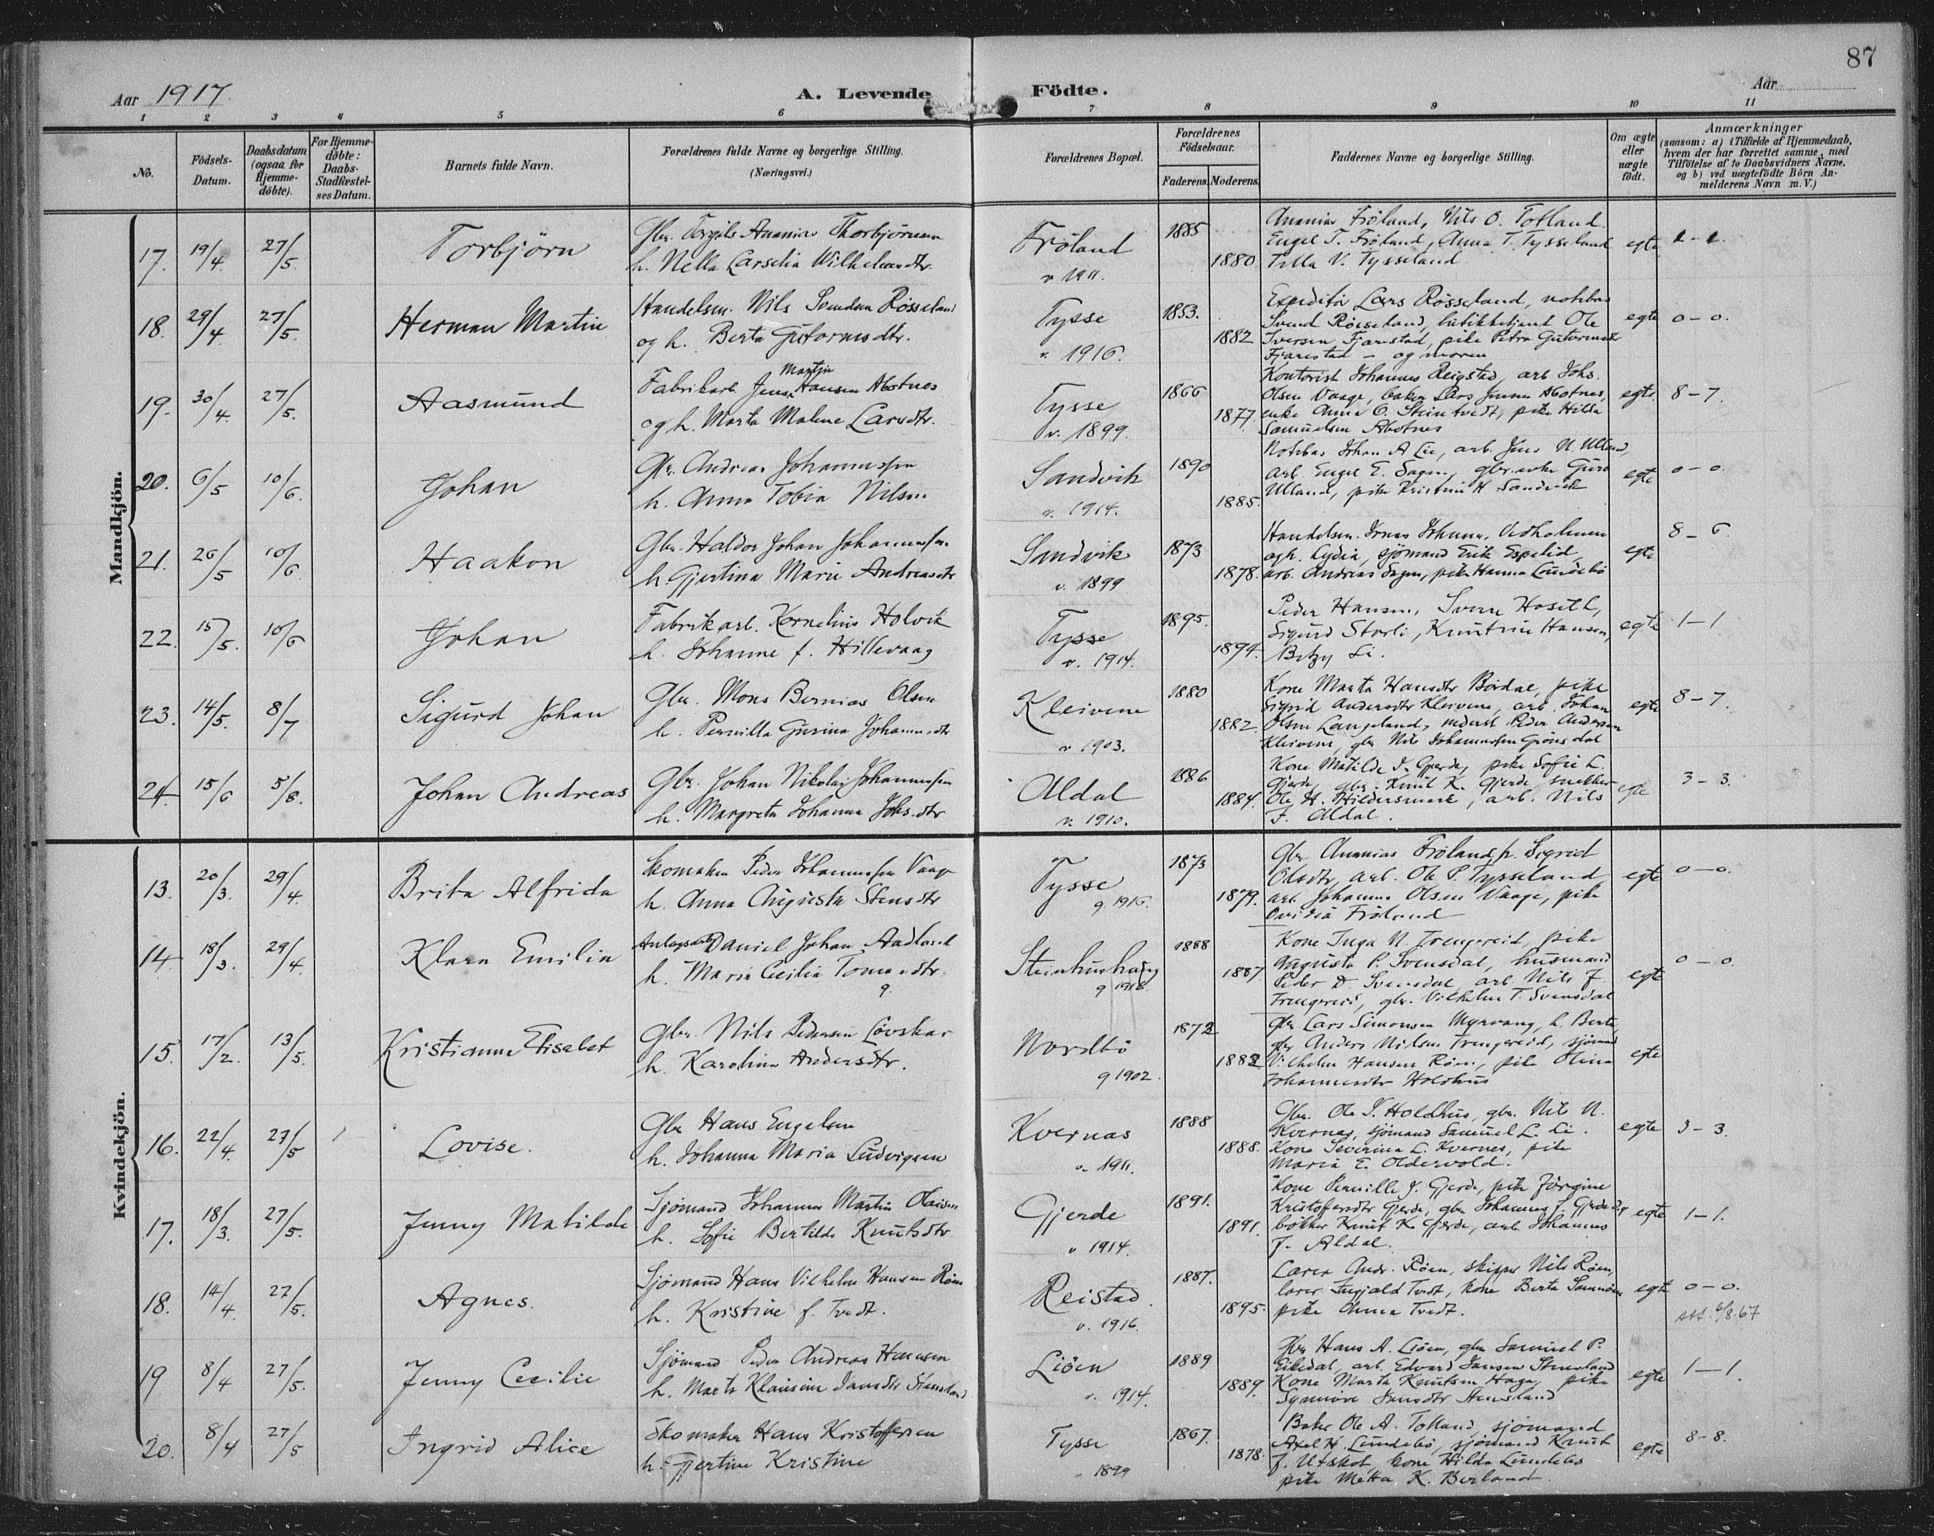 87
Aar 1917.
A. Levende Födte.
Aar
1 2 3 4 5 6 7 8 9 10 11
No.
Födsels-Datum.
Daabsdatum (ogsaa for Hjemme-döbte).
For Hjemme-döbte: Daabs-Stadfæstel-ses Datum.
Barnets fulde Navn.
Forældrenes fulde Navne og borgerlige Stilling.
(Næringsvei.)
Forældrenes Bopæl.
Forældrenes Födselsaar.
Faderens. Moderens.
Faddernes Navne og borgerlige Stilling.
Om ægte eller uægte födt.
Anmærkninger
(saasom: a) i Tilfælde af Hjemmedaab, hvem der har forrettet samme, med Tilföielse af to Daabsvidners Navne, og b) ved uægtefödte Börn An-melderens Navn m. V.)
Mandkjön.
17. 19/4 27/5 Torbjørn
Gbr. Torgils Ananias Thorbjørnsen
h. Nella Larselia Wilhelmsdtr.
Frøland v 1911.
1885 1880
Ananias Frøland, Nils O. Tofland
Engel T. Frøland, Anna T. Tysseland
Tilla V. Tysseland
egte
18. 29/4 27/5. Herman Martin
Handelsm. Nils Svendsen Røsseland
og h. Berta Gutormsdtr.
Tysse v. 1916.
1853. 1882
Expeditør Lars Røsseland, notebas
Svend Røisseland, butikkbetjent Ole
Iversen Fjarestad, pike Petra Gutormsd
Fjarestad - og moren
egte 0 - 0.
19. 30/4. 27/5. Aasmund
Fabrikarb. Jens Martin Hansen Abotnes
og h. Marta Malene Larsdtr.
Tysse v. 1899.
1866 1877
Kontorist Johannes Reigstad, arb. Johs.
Olsen Vaage, baker Lars Jensen Abotnes,
enke Anna O. Steintvedt, pike Hilda
Samuelsen Abotnes
egte. 8 - 7.
20. 6/5 10/6. Johan
Gbr. Andreas Johannessen
h. Anna Tobia Nilsen
Sandvik v. 1914.
1890 1885.
Notebas Johan A Lie, arb. Jens N. Ulland,
arb. Engel E. Sagen, gbr.enke Guro
Ulland, pike Kristine H Sandvik
egte 0 - 0.
21. 26/5 10/6. Haakon
Gbr. Haldor Johan Johannessen.
h. Gjertina Marie Andreasdtr
Sandvik v. 1899
1873 1878.
Handelsm. Jonas Johannes. Adholmen
og h. Lydia, sjömand Erik Espelid
arb. Andreas Sagen, pike Hanna Lundebö
egte 8 - 6.
22. 15/5. 10/6 Johan
Fabrikarb. Kornelius Holvik
h. Johanne f. Hillevaag
Tysse v. 1914.
1895. 1894.
Peder Hansen, Sverre Hoseth,
Sigurd Storli, Knutrine Hansen,
Betzy Li.
egte 1 - 1
23. 14/5. 8/7 Sigurd Johan
Gbr. Mons Bernias Olsen
h. Pernilla Gurina Johannesdtr
Kleivene v 1903.
1880 1882.
Kone Marta Hansdtr Børdal, pike
Sigrid Andersdtr Kleivene, arb. Johan
Olsen Langeland, inderst Peder Andersen
Kleivene, gbr Nils Johannessen Grönsdal
egte 8 - 7.
24 15/6 5/8. Johan Andreas
Gbr. Johan Nikolai Johannessen
h. Margreta Johanna Johs.dtr
Aldal v. 1910.
1886 1884.
Kone Matilde J. Gjerde, pike Sofie L.
Gjerde, gbr. Knut K. Gjerde, snekker
Ole H. Hildersmark, arb. Nils
J. Aldal.
egte 3 - 3.
Kvindekjön.
13. 20/3. 29/4. Brita Alfrida
Skomaker Peder Johannessen Vaage
h. Anna Augusta Stensdtr
Tysse g 1915.
1873 1879.
Gbr. Ananias Frøland, h. Sigrid
Olsdtr, arb. Ole P. Tysseland
arb Johannes Olsen Vaage, pike
Ovidia Frøland
egte 0 - 0.
14 18/3. 29/4 Klara Emilia
Anlægsarb. Daniel Johan Aadland
h. Maria Cecilia Tomasdtr.
Steinhushaug g 1916
1888 1887
Kone Inga N. Trengereid, pike
Augusta P. Svensdal, husmand
Peder D. Svensdal, arb. Nils J.
Trengereid, gbr. Vilhelm T. Svensdal
egte 0 - 0.
15. 17/2. 13/5. Kristianne Elisabet
Gbr. Nils Pedersen Løvskar
h. Karolina Andersdtr.
Nordbö g 1902.
1872 1882
Gbr Lars Simonsen Myrvang, h. Berta,
gbr Anders Nilsen Trengereid, sjömand
Vilhelm Hansen Røen, pike Olina
Johannesdtr Holdhus
egte
16. 22/4. 27/5 1 Lovise.
Gbr Hans Engelsen
h. Johanna Maria Ludvigsen
Kvernas v. 1911.
1888 1888.
Gbr. Ole I. Holdhus, gbr. Nils N.
Kvernas, sjømand Samuel L. Li.
Kone Severina L. Kvernes, pike
Maria E. Oldervold.
egte 3 - 3.
17. 18/3. 27/5. Jenny Matilde
Sjømand Johannes Martin Olaisen
h. Sofie Bertilde Knutsdtr
Gjerde v 1914.
1891. 1891.
Kone Pernille J. Gjerde, pike Jörgine
Kristofersdtr Gjerde, gbr Johannes J. Gjerde
bøkker Knut K. Gjerde, arb. Johannes
J. Aldal.
egte 1 - 1.
18. 14/4. 27/5. Agnes.
Sjømand Hans Vilhelm Hansen Røen
h. Kristine f. Tvedt.
Reistad. v. 1916.
1887. 1895.
Lærer Andr. Røen, skipper Nils Røen,
lærer Ingjald Tvedt, kone Berta
pike Anna Tvedt.
egte 0 - 0.
Att. 6/8.67
19 8/4 27/5. Jenny Cecilie
Sjømand Peder Andreas Hansen
h. Marta Klausine Jansdtr Stensland
Liöen v. 1914.
1889 1889.
Gbr Hans A. Liöen, gbr Samuel P.
Eikedal, arb. Edvard Jansen Stensland
Kone Marta Knutsen Haga, pike
Synnöve Jansdtr Stensland
egte 1 - 1.
20. 8/4 27/5 Ingrid Alice
Skomaker Hans Kristoffersen
h. Gjertine Kristine
Tysse v 1899
1867. 1878.
Baker Ole A. Tolland, sjömand
Axel H. Lundebö, sjömand Knut
J. Utskot, kone Hilda Lundebö
pike Metta K. Berland.
egte 8 - 8.